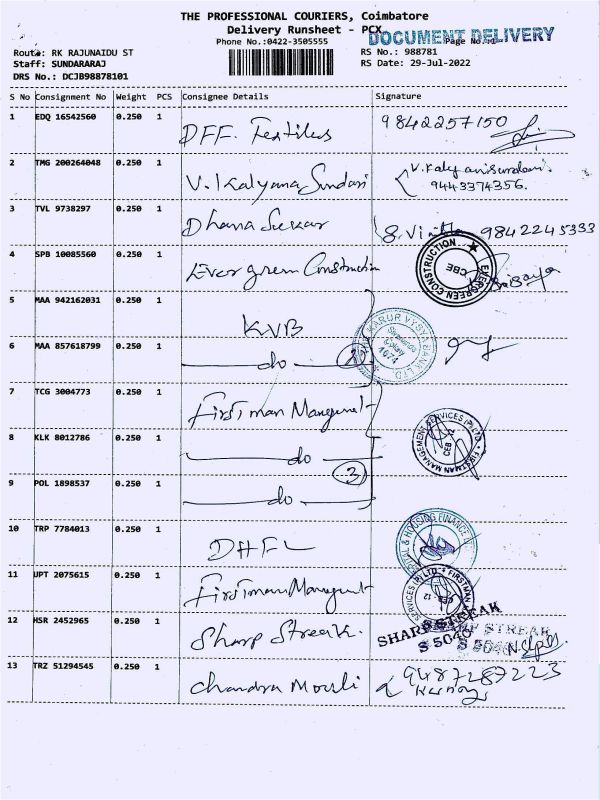 THE PROFESSIONAL COURIERS, Coimbatore
Delivery Runsheet - PCX
DOCUMENT DELIVERY
Phone No.:0422-3505555
Page No.
Route: RK RAJUNAIDU ST
RS No.: 988781
Staff: SUNDARARAJ
RS Date: 29-Jul-2022
DRS No.: DCJB98878101
S No Consignment No Weight PCS Consignee Details Signature
1 EDQ 16542560 0.250 1 DFF. Textiles 9842257150
2 TMG 200264048 0.250 1 V. Kalyana Sundari V. Kalyanisundari
9443374356.
3 TVL 9738297 0.250 1 Dhana Sekar S. 9842245333
4 SPB 10085560 0.250 1 Evergreen Construction
EVERGREEN CONSTRUCTION
CBE
5 MAA 942162031 0.250 1 KVB
KARUR VYSYA BANK LTD.
Colony
6 MAA 857618799 0.250 1 do 2
7 TCG 3004773 0.250 1 Firstman Mangement
FIRSTMAN MANAGEMENT SERVICES (P) LTD
CBE
8 KLK 8012786 0.250 1 do
3
9 POL 1898537 0.250 1 do
10 TRP 7784013 0.250 1 DHFL
& HOUSING FINANCE
11 UPT 2075615 0.250 1 Firstman Mangement
SERVICES (P) LTD FIRSTMAN
12 HSR 2452965 0.250 1 Sharp Streak.
SHARP STREAK
S 5040
STREAK
S 5040
13 TRZ 51294545 0.250 1 Chandra Mouli 9487287223